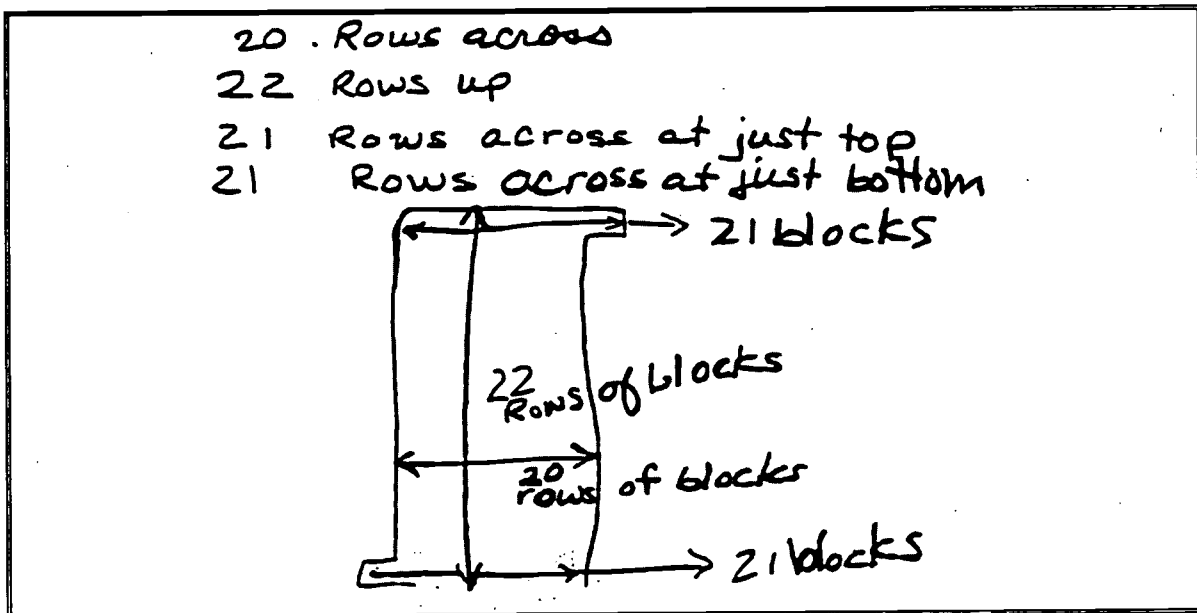 20 . Rows across
22 Rows up
21 Rows across at just top
21 Rows across at just bottom
21 blocks
22 Rows of blocks
20 rows of blocks
21 blocks